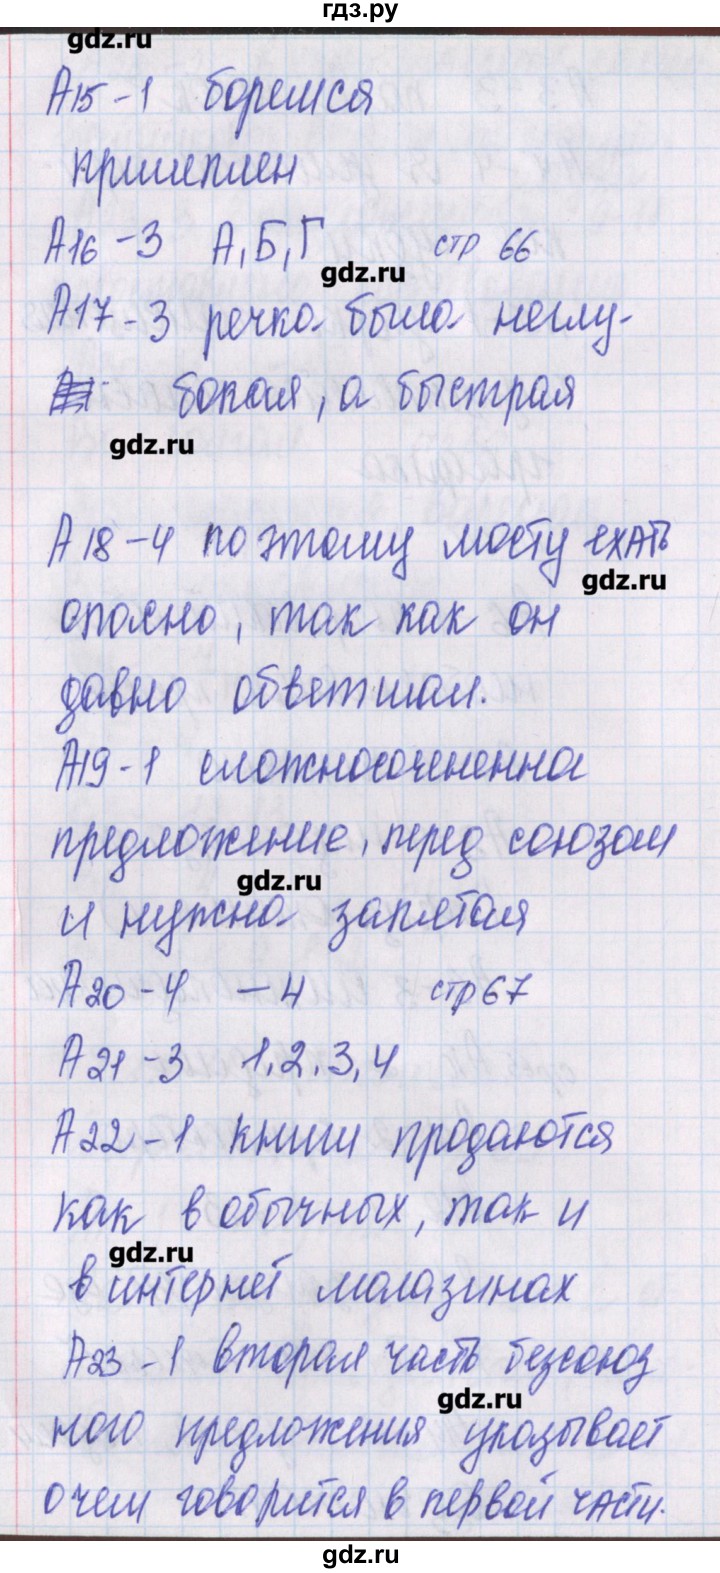 гдз.ру
gdz.ru
А15-1 боремся
приклеплен
А16-3 А,Б,Г стр 66
gdz.ru
А17-3 речка была неглу-
бокая, а быстрая
gdz.ru
А18-4 по этому мосту ехать
gdz.ru
опасно, так как он
давно обветшал.
А19-1 сложносочененное
предложение, перед союзом
gdz.ru
и нужна запятая
А20-4 -4 стр 67
А21-3 1,2,3,4
А22-1 книги продаются
как в обычных, так и
gdz.ru
в интернет магазинах
А23-1 вторая часть безсоюз
gdz.ru
ного предложения указывает
о чем говорится в первой части.
gdz.ru